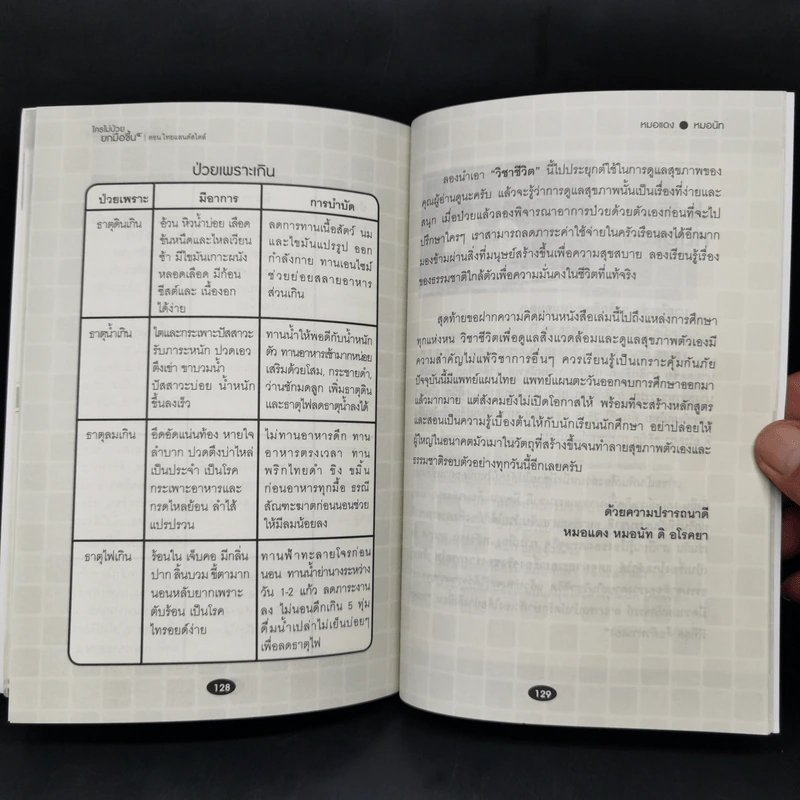 ใครไม่ป่วย
ยกมือขึ้น
ตอน ไทยแลนด์สไตล์
ป่วยเพราะเกิน
ป่วยเพราะ มีอาการ การบำบัด
ธาตุดินเกิน
อ้วน หิวน้ำบ่อย เลือด
ข้นหนืดและไหลเวียน
ช้า มีไขมันเกาะผนัง
หลอดเลือด มีก้อน
ซีสต์และ เนื้องอก
ได้ง่าย
ลดการทานเนื้อสัตว์ นม
และไขมันแปรรูป ออก
กำลังกาย ทานเอนไซม์
ช่วยย่อยสลายอาหาร
ส่วนเกิน
ธาตุน้ำเกิน
ไตและกระเพาะปัสสาวะ
รับภาระหนัก ปวดเอว
ตึงเข่า ขาบวมน้ำ
ปัสสาวะบ่อย น้ำหนัก
ขึ้นลงเร็ว
ทานน้ำให้พอดีกับน้ำหนัก
ตัว ทานอาหารเช้ามากหน่อย
เสริมด้วยโสม, กระชายดำ,
ว่านชักมดลูก เพิ่มธาตุดิน
และธาตุไฟลดธาตุน้ำลงได้
ธาตุลมเกิน
อึดอัดแน่นท้อง หายใจ
ลำบาก ปวดตึงบ่าไหล่
เป็นประจำ เป็นโรค
กระเพาะอาหารและ
กรดไหลย้อน ลำไส้
แปรปรวน
ไม่ทานอาหารดึก ทาน
อาหารตรงเวลา ทาน
พริกไทยดำ ขิง ขมิ้น
ก่อนอาหารทุกมื้อ ธรณี
สัณฑะฆาตก่อนนอนช่วย
ให้มีลมน้อยลง
ธาตุไฟเกิน
ร้อนใน เจ็บคอ มีกลิ่น
ปาก ลิ้นบวม ขี้ตามาก
นอนหลับยากเพราะ
ตับร้อน เป็นโรค
ไทรอยด์ง่าย
ทานฟ้าทะลายโจรก่อน
นอน ทานน้ำย่านางระหว่าง
วัน 1-2 แก้ว ลดภาระงาน
ลง ไม่นอนดึกเกิน 5 ทุ่ม
ดื่มน้ำเปล่าไม่เย็นบ่อยๆ
เพื่อลดธาตุไฟ
128
หมอแดง ● หมอนัท
ลองนำเอา “วิชาชีวิต” นี้ไปประยุกต์ใช้ในการดูแลสุขภาพของ
คุณผู้อ่านดูนะครับ แล้วจะรู้ว่าการดูแลสุขภาพนั้นเป็นเรื่องที่ง่ายและ
สนุก เมื่อป่วยแล้วลองพิจารณาอาการป่วยด้วยตัวเองก่อนที่จะไป
ปรึกษาใครๆ เราสามารถลดภาระค่าใช้จ่ายในครัวเรือนลงได้อีกมาก
มองข้ามผ่านสิ่งที่มนุษย์สร้างขึ้นเพื่อความสุขสบาย ลองเรียนรู้เรื่อง
ของธรรมชาติใกล้ตัวเพื่อความมั่นคงในชีวิตที่แท้จริง
สุดท้ายขอฝากความคิดผ่านหนังสือเล่มนี้ไปถึงแหล่งการศึกษา
ทุกแห่งหน วิชาชีวิตเพื่อดูแลสิ่งแวดล้อมและดูแลสุขภาพตัวเองมี
ความสำคัญไม่แพ้วิชาการอื่นๆ ควรเรียนรู้เป็นเกราะคุ้มกันภัย
ปัจจุบันนี้มีแพทย์แผนไทย แพทย์แผนตะวันออกจบการศึกษาออกมา
แล้วมากมาย แต่สังคมยังไม่เปิดโอกาสให้ พร้อมที่จะสร้างหลักสูตร
และสอนเป็นความรู้เบื้องต้นให้กับนักเรียนนักศึกษา อย่าปล่อยให้
ผู้ใหญ่ในอนาคตมัวเมาในวัตถุที่สร้างขึ้นจนทำลายสุขภาพตัวเองและ
ธรรมชาติรอบตัวอย่างทุกวันนี้อีกเลยครับ
ด้วยความปรารถนาดี
หมอแดง หมอนัท ดิ อโรคยา
129